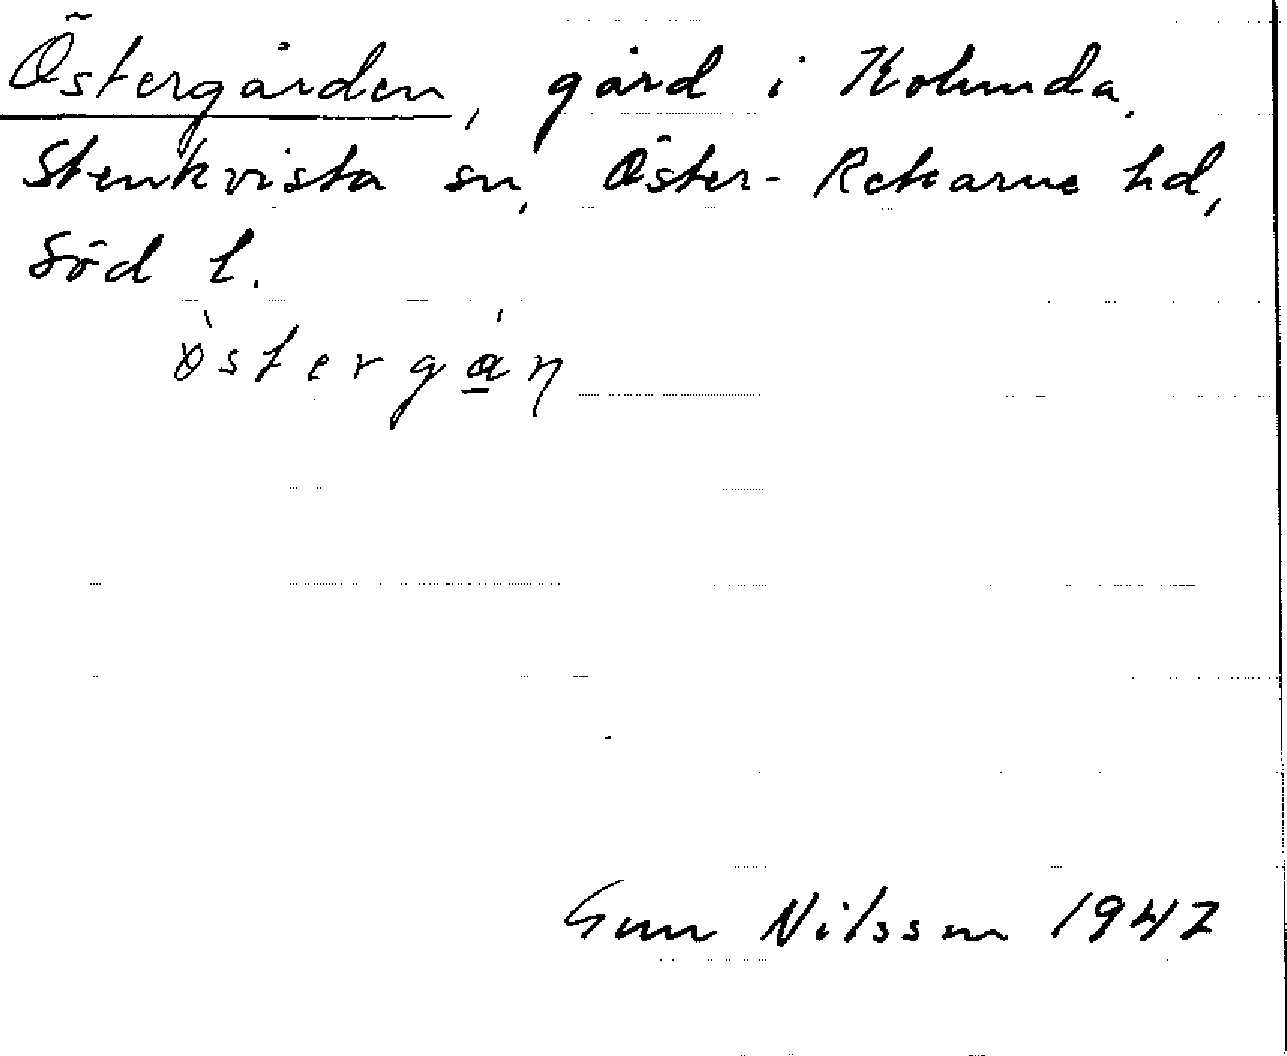 Östergården, gård i Kolunda,
Stenkvista sn, Öster-Rekarne hd,
Söd l.
Gun Nilsson 1947